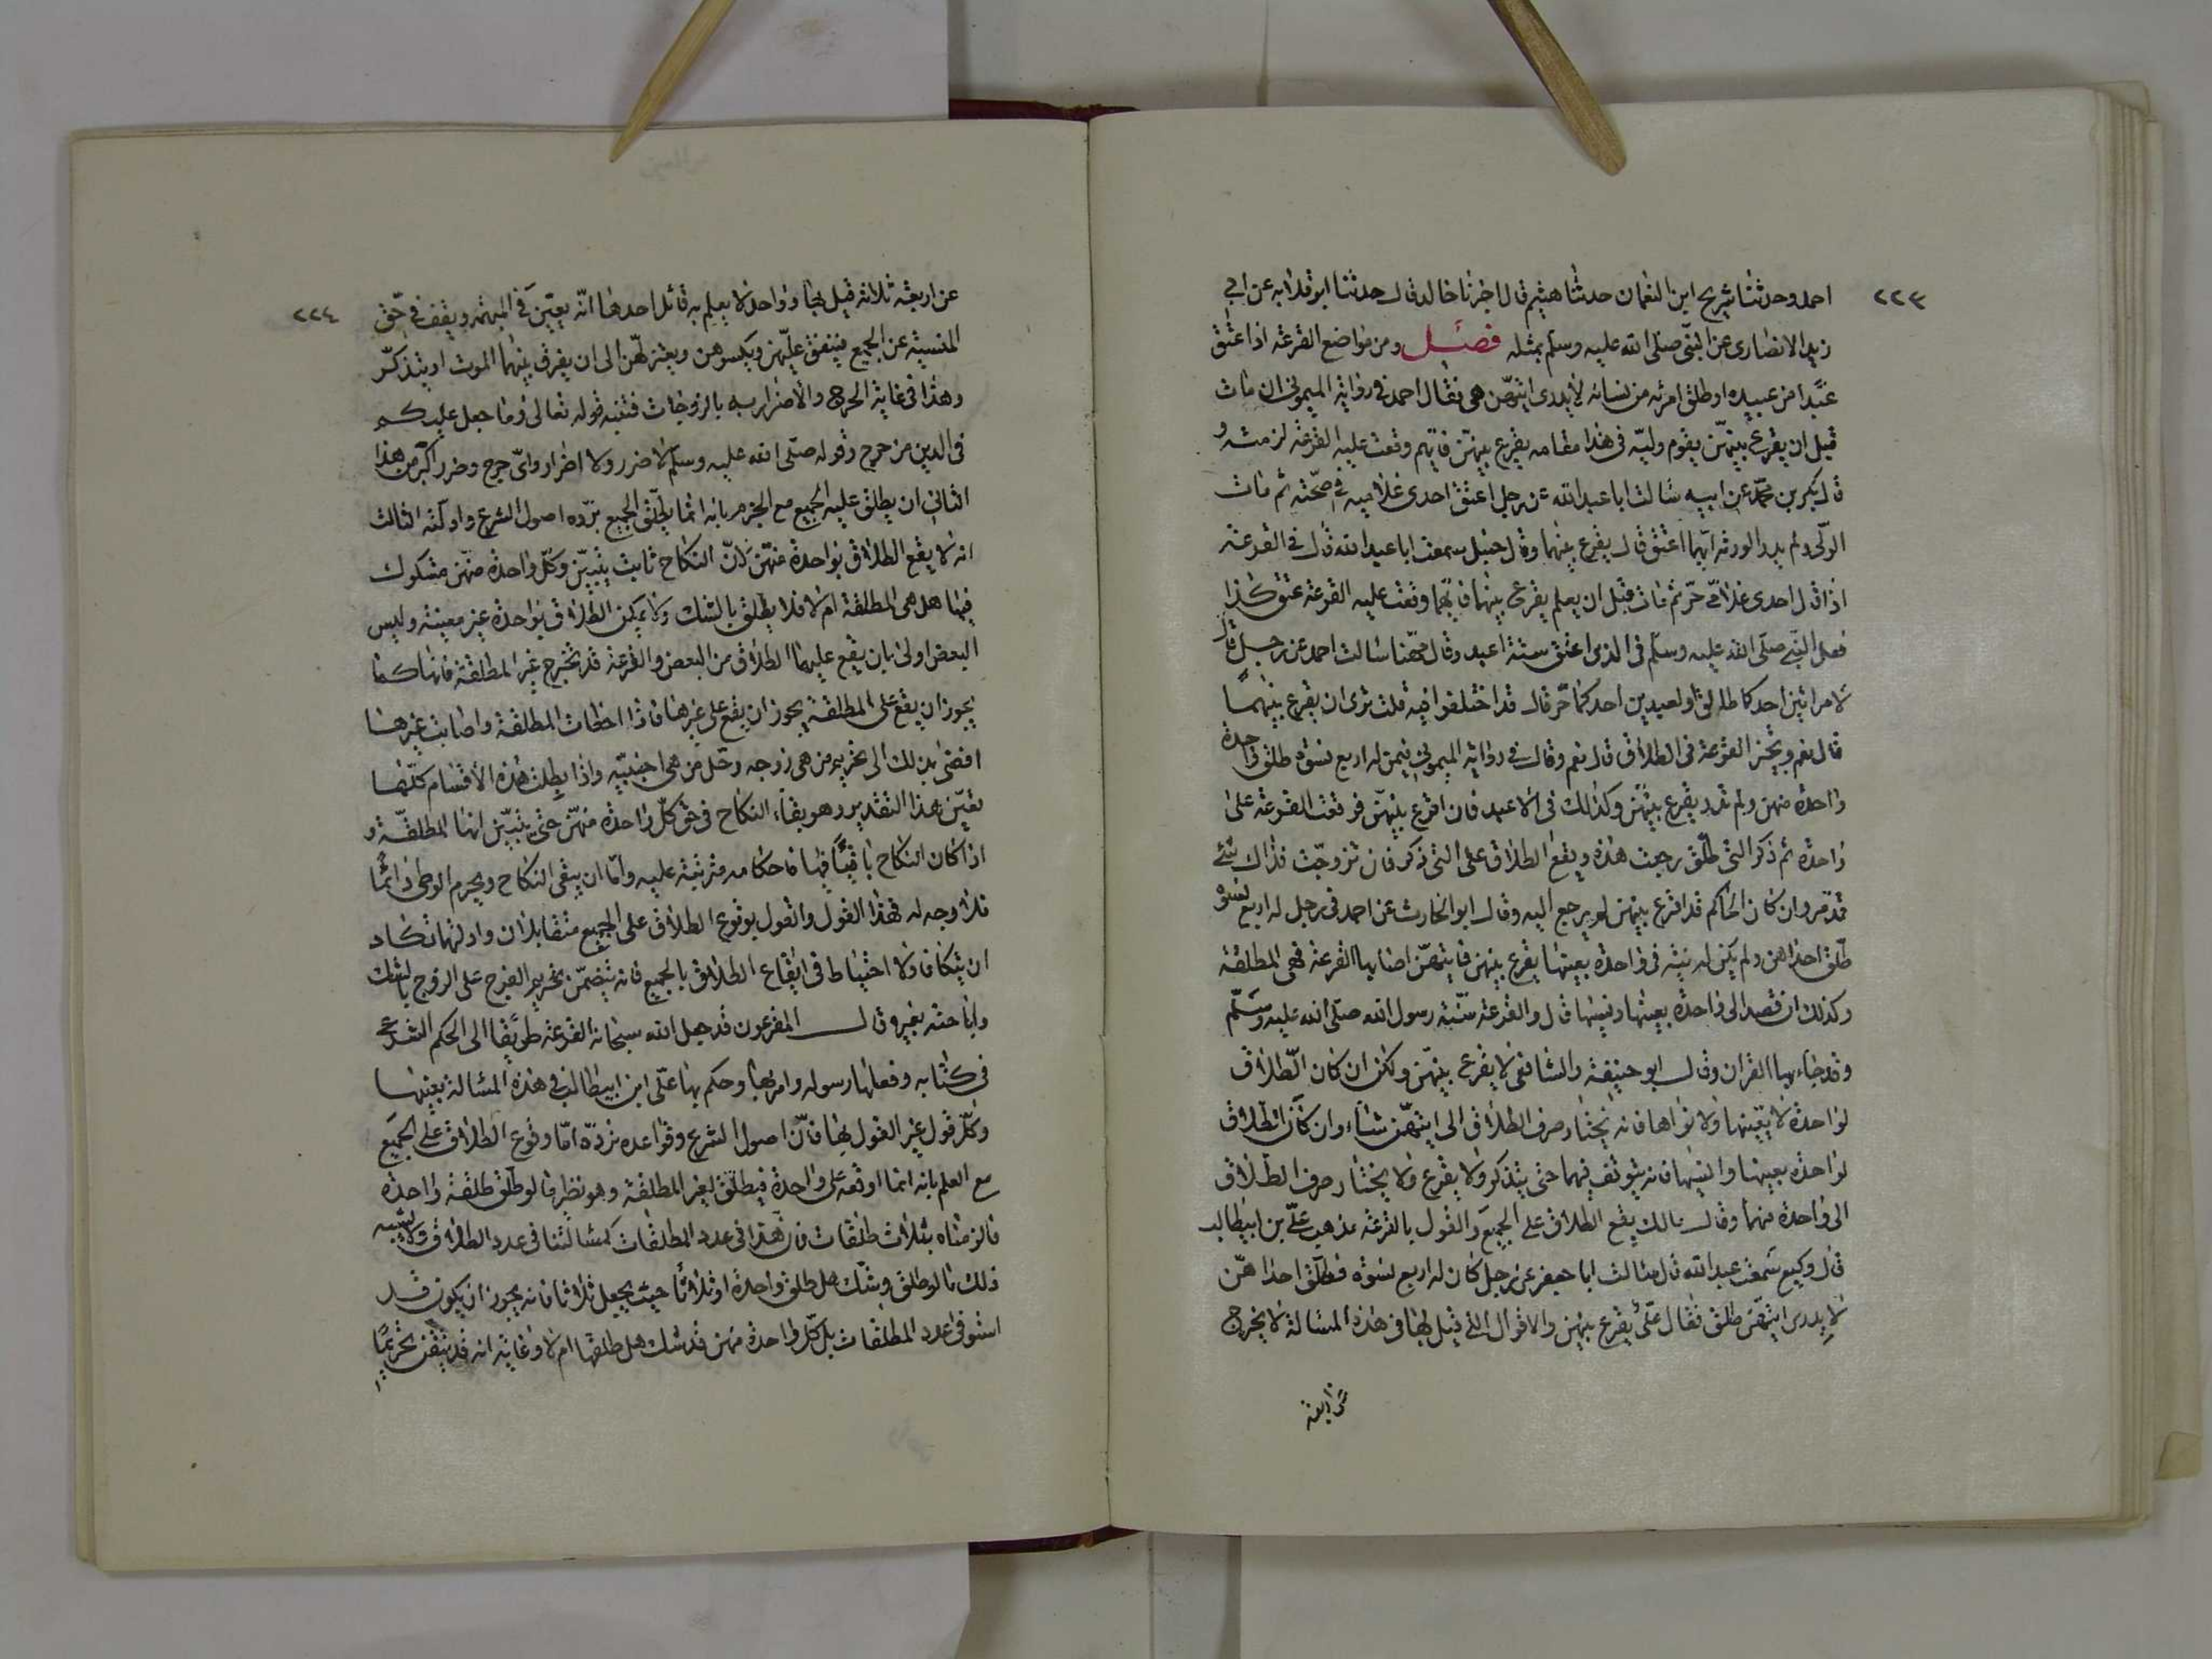 ٢٢٣
احمد وحدثنا شريح ابن النعمان حدثنا هشيم قال اخبرنا خالد قال حدثنا ابو قلابه عن ابي
زيد الانصارى عن النبّى صلّى الله عليه وسلّم بمثله فصل ومن مواضع القرعة اذا اعتق
عبدا من عبيده او طلق امرئه من نسائه لا يدرى ايتهّن هى فقال احمد فى رواية الميمونى ان مات
قبل ان يقرع بينهنّ يقوم وليّه فى هذا مقامه يقرع بينهنّ فايّهم وقعت عليه القرعة لزمته و
قال بكر بن محمّد عن ابيه سالت ابا عبد الله عن رجل اعتق احدى غلاميه فى صحّته ثم مات
المولّى ولم يدر الورثه ايّهما اعتق قال يقرع بينهما وقال حنبل سمعت ابا عبد الله قال فى القرعة
اذا قال احدى غلامّى حرّ ثم مات قبل ان يعلم يقرع بينهما فايّهما وقعت عليه القرعة عتق كذا
فعل النبّى صلّى الله عليه وسلّم فى الذى اعتق ستّة اعبد وقال مهّنا سالت احمد عن رجل قال
لامراتين احدكما طالق او لعبدين احدكما حّر قال قد اختلفوا فيه قلت ترى ان يقرع بينهما
قال نعم ويجيز القرعة فى الطلاق قال نعم وقال فى رواية الميمونى فيمن له اربع نسوة طلق واحدة
واحدة منهن ولم يدر يقرع بينهنّ وكذلك فى الاعبد فان اقرع بينهنّ فوقعت القرعة على
واحدة ثم ذكر التى طلّق رجعت هذه ويقع الطلاق على التى ذكر فان تزوجّت فذاك شئ
قد مر وان كان الحاكم قد اقرع بينهن لم يرجع اليه وقال ابو الحارث عن احمد فى رجل له اربع نسوه
طلّق احداهن ولم يكن له نيّة فى واحدة بعينها يقرع بينهن فايتهّن اصابها القرعة فهى المطلقة
وكذلك ان قصد الى واحدة بعينها ونسيها قال والقرعة سنّة رسول الله صلّى الله عليه وسلّم
وقد جاء بها القران وقال ابو حنيفة والشافعى لا يقرع بينهّن ولكن ان كان الطّلاق
لواحدة لا بعينها ولا نواها فانه يختار صرف الطلاق الى ايتهّن شاء وان كان الطلاق
لواحدة بعينها والنيسها فانه يتوقف فيهما حتى يتذكر ولا يقرع ولا يختار صرف الطلاق
الى واحدة منهما وقال مالك يقع الطلاق على الجميع والقول بالقرعة مذهب علّى بن ابيطالب
قال وكيع سمعت عبد الله قال سالت ابا جعفر عن رجل كان له اربع نسوة فطلّق احداهّن
لا يدرى ايتهّن طلق فقال علّى يقرع بينهن والاقوال التى قيل بها فى هذه المسالة لا يخرج
عن اربعة
٢٢٤
عن اربعة ثلاثة قيل بها وواحد لا يعلم به قائل احدها انّه يعيّن فى المبهمة ويقف فى حّق
المنسيّة عن الجميع فينفق عليّهن ويكسوهن ويعتزلهّن الى ان يفرق بينهما الموت او يتذكّر
وهذا فى غاية الحرج والاضرار به بالزوجات فتنبه قوله تعالى وما جعل عليكم
فى الدين من حرج وقوله صلّى الله عليه وسلّم لا ضرر ولا اضرار واىّ حرج وضرر اكبر من هذا
الثانى ان يطلق عليه الجميع مع الجزم بانه انما يطلّق الجميع تردّه اصول الشرع وادلّته الثالث
انه لا يقع الطلاق بواحدة منهّن لانّ النكاح ثابت بيقين وكلّ واحدة منهّن مشكوك
فيها هل هى المطلقة ام لا فلا يطلق بالشك ولا يمكن الطلاق بواحدة غير معينة وليس
البعض اولى بان يقع عليها الطلاق من البعض والقرعة قد تخرج غير المطلقة فانها كما
يجوز ان يقع على المطلقة يجوز ان يقع على غيرها فاذا اخطات المطلقة واصابت غيرها
افضى بذلك الى تحريم من هى زوجه وحّل من هى اجنبيّه واذا بطلت هذه الاقسام كلّها
تعيّن هذا التقدير وهو بقاء النكاح فى حق كلّ واحدة منهّن حتى يتبيّن انها المطلقّة و
اذا كان النكاح باقيًا فيها فاحكامه مترتبة عليه وامّا ان يبقى النكاح ويحرم الوطى دائمًا
فلا وجه له فهذا القول والقول بوقوع الطلاق على الجميع متقابلان وادلتهما تكاد
ان يتكافا ولا احتياط فى ايقاع الطلاق بالجميع فانه يتضمّن تحريم الفرج على الزوج بالشك
واباحته بغيره قال المقرعون قد جعل الله سبحانه القرعة طريقا الى الحكم الشرعى
فى كتابه وفعلها رسوله وامر بها وحكم بها علّى ابن ابيطالب فى هذه المسالة بعينها
وكلّ قول غير القول بها فانّ اصول الشرع وقواعده تردّه امّا وقوع الطلاق على الجميع
مع العلم بانه انما اوقعه على واحدة فيطلّق لغير المطلقة وهو نظير ما لو طلّق طلقة واحدة
فالزمناه بثلاث طلقات فان هذا فى عدد المطلقات كمسالتنا فى عدد الطلاق ولا يشبه
ذلك ما لو طلق وشّك هل طلق واحدة او ثلاثًا حيث يجعل ثلاثا فانه يجوز ان يكون قد
استوفى عدد المطلقات بل كلّ واحدة منهن قد شك هل طلقها ام لا وغايته انه قد تيقن تحريمًا